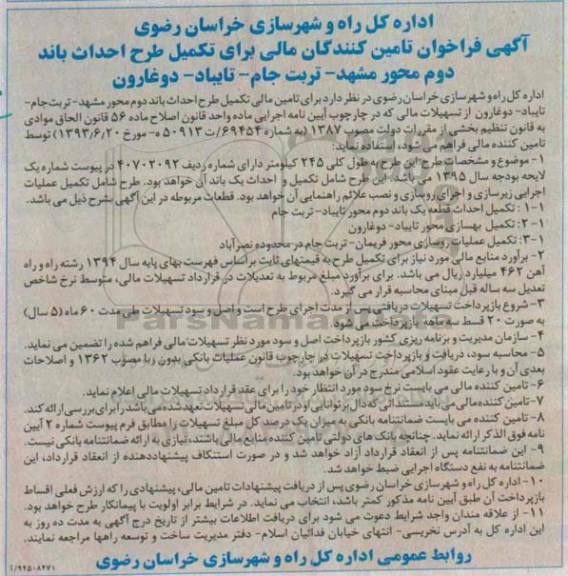 اداره کل راه و شهرسازی خراسان رضوی
آگهی فراخوان تامین کنندگان مالی برای تکمیل طرح احداث باند
دوم محور مشهد- تربت جام- تایباد- دوغارون
اداره کل راه و شهرسازی خراسان رضوی در نظر دارد برای تامین مالی تکمیل طرح احداث باند دوم محور مشهد- تربت جام-
تایباد- دوغارون از تسهیلات مالی که در چارچوب آیین نامه اجرایی ماده واحد قانون اصلاح ماده ۵۶ قانون الحاق موادی
به قانون تنظیم بخشی از مقررات دولت مصوب ۱۳۸۷ (به شماره ۶۹۴۵۴/ت ۵۰۹۱۳ ه- مورخ ۱۳۹۳/۶/۲۰) توسط
تامین کننده مالی فراهم می شود، استفاده نماید:
۱- موضوع و مشخصات طرح: این طرح به طول کلی ۲۴۵ کیلومتر دارای شماره ردیف ۴۰۷۰۲۰۹۲ در پیوست شماره یک
لایحه بودجه سال ۱۳۹۵ می باشد. این طرح شامل تکمیل و احداث یک باند آن خواهد بود. طرح شامل تکمیل عملیات
اجرایی زیرسازی و اجرای روسازی و نصب علائم راهنمایی آن خواهد بود. قطعات مربوطه در این آگهی بشرح ذیل می باشد.
۱-۱: تکمیل احداث قطعه یک باند دوم محور تایباد- تربت جام
۲-۱: تکمیل بهسازی محور تایباد- دوغارون
۳-۱: تکمیل عملیات روسازی محور فریمان- تربت جام در محدوده نصرآباد
۲- برآورد منابع مالی مورد نیاز برای تکمیل طرح به قیمتهای ثابت بر اساس فهرست بهای پایه سال ۱۳۹۴ رشته راه و راه
آهن ۴۶۲ میلیارد ریال می باشد. برای برآورد مبلغ مربوط به تعدیلات در قرارداد تسهیلات مالی، متوسط نرخ شاخص
تعدیل سه ساله قبل مبنای محاسبه قرار می گیرد.
۳- شروع بازپرداخت تسهیلات دریافتی پس از مدت اجرای طرح است و اصل و سود تسهیلات طی مدت ۶۰ ماه (۵ سال)
به صورت ۲۰ قسط سه ماهه بازپرداخت می شود.
۴- سازمان مدیریت و برنامه ریزی کشور بازپرداخت اصل و سود مورد نظر تسهیلات مالی فراهم شده را تضمین می نماید.
۵- محاسبه سود، دریافت و بازپرداخت تسهیلات در چارچوب قانون عملیات بانکی بدون ربا مصوب ۱۳۶۲ و اصلاحات
بعدی آن و با رعایت عقود اسلامی مندرج در آن خواهد بود.
۶- تامین کننده مالی می بایست نرخ سود مورد انتظار خود را برای عقد قرارداد تسهیلات مالی اعلام نماید.
۷- تامین کننده مالی می باید مستنداتی که دال بر توانایی او در تامین مالی تسهیلات تعهد شده می باشد را برای بررسی ارائه کند.
۸- تامین کننده می بایست ضمانتنامه بانکی به میزان یک درصد کل مبلغ تسهیلات را مطابق فرم پیوست شماره ۲ آیین
نامه فوق الذکر ارائه نماید. چنانچه بانک های دولتی تامین کننده منابع مالی باشند، نیازی به ارائه ضمانتنامه بانکی نیست.
۹- این ضمانتنامه پس از انعقاد قرارداد آزاد خواهد شد و در صورت استنکاف پیشنهاددهنده از انعقاد قرارداد، این
ضمانتنامه به نفع دستگاه اجرایی ضبط خواهد شد.
۱۰- اداره کل راه و شهرسازی خراسان رضوی پس از دریافت پیشنهادات تامین مالی، پیشنهادی را که ارزش فعلی اقساط
بازپرداخت آن طبق آیین نامه مذکور کمتر باشد، انتخاب می نماید. در شرایط برابر اولویت با پیمانکار طرح خواهد بود.
۱۱- از علاقه مندان واجد شرایط دعوت می شود برای دریافت اطلاعات بیشتر از تاریخ درج آگهی به مدت ده روز به
این اداره کل به آدرس نخریسی- انتهای خیابان فدائیان اسلام- دفتر مدیریت ساخت و توسعه راهها مراجعه نمایند.
روابط عمومی اداره کل راه و شهرسازی خراسان رضوی
/۹۴۵۰۸۴۷۱